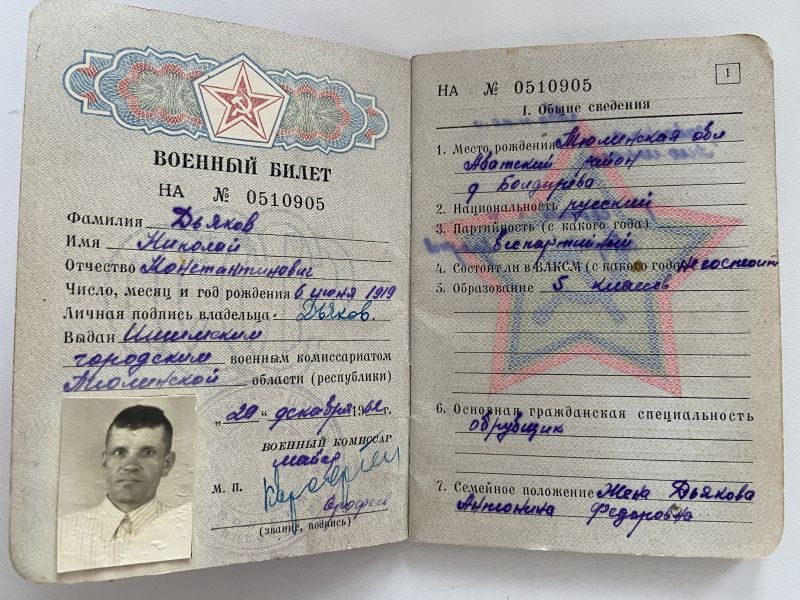 ВОЕННЫЙ БИЛЕТ
НА № 0510905
Фамилия Дьяков
Имя Николай
Отчество Константинович
Число, месяц и год рождения 6 июня 1919
Личная подпись владельца - Дьяков.
Выдан Ишимским
городским военным комиссариатом
Тюменской области (республики)
„29“ декабря 1962 г.
ВОЕННЫЙ КОМИССАР
майор
М. П.
(звание, подпись)
1
НА № 0510905
I. Общие сведения
1. Место рождения Тюменская обл
Абатский район
д Болдирева
2. Национальность русский
3. Партийность (с какого года)
беспартийный
4. Состоят ли в ВЛКСМ (с какого года) Не состоит
5. Образование 5 классов
6. Основная гражданская специальность
обрубщик
7. Семейное положение Жена Дьякова
Антонина Федоровна